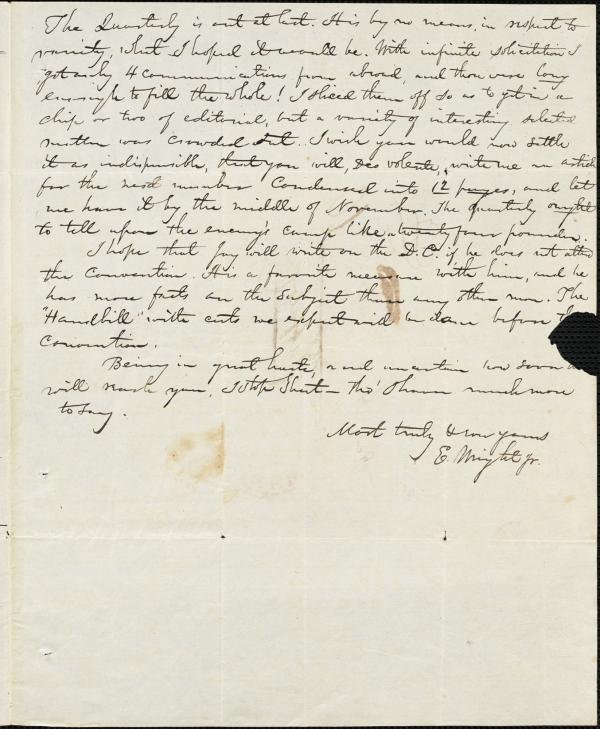 The Quarterly is out at last. It is by no means, in respect to
variety, what I hoped it would be. With infinite solicitation I
got only 4 communications from abroad, and those were long
enough to fill the whole! I sliced them off so as to get in a
chip or two of editorial, but a variety of interesting selected
matter was crowded out. I wish you would now settle
it as indispensible, that you will, Deo volente, write me an article
for the next number condensed into 12 pages, and let
me have it by the middle of November. The quarterly ought
to tell upon the enemy's camp like a twenty four pounder.
I hope that Jay will write on the D.C. if he does not attend
the Convention. It is a favorite measure with him, and he
has more facts on the subject than any other man. The
"Handbill" with cuts we expect will be done before the
Convention.
Being in great haste, and uncertain how soon
will reach you, I stop short — tho' I have much more
to say.
Most truly & ever yours
E. Wright Jr.